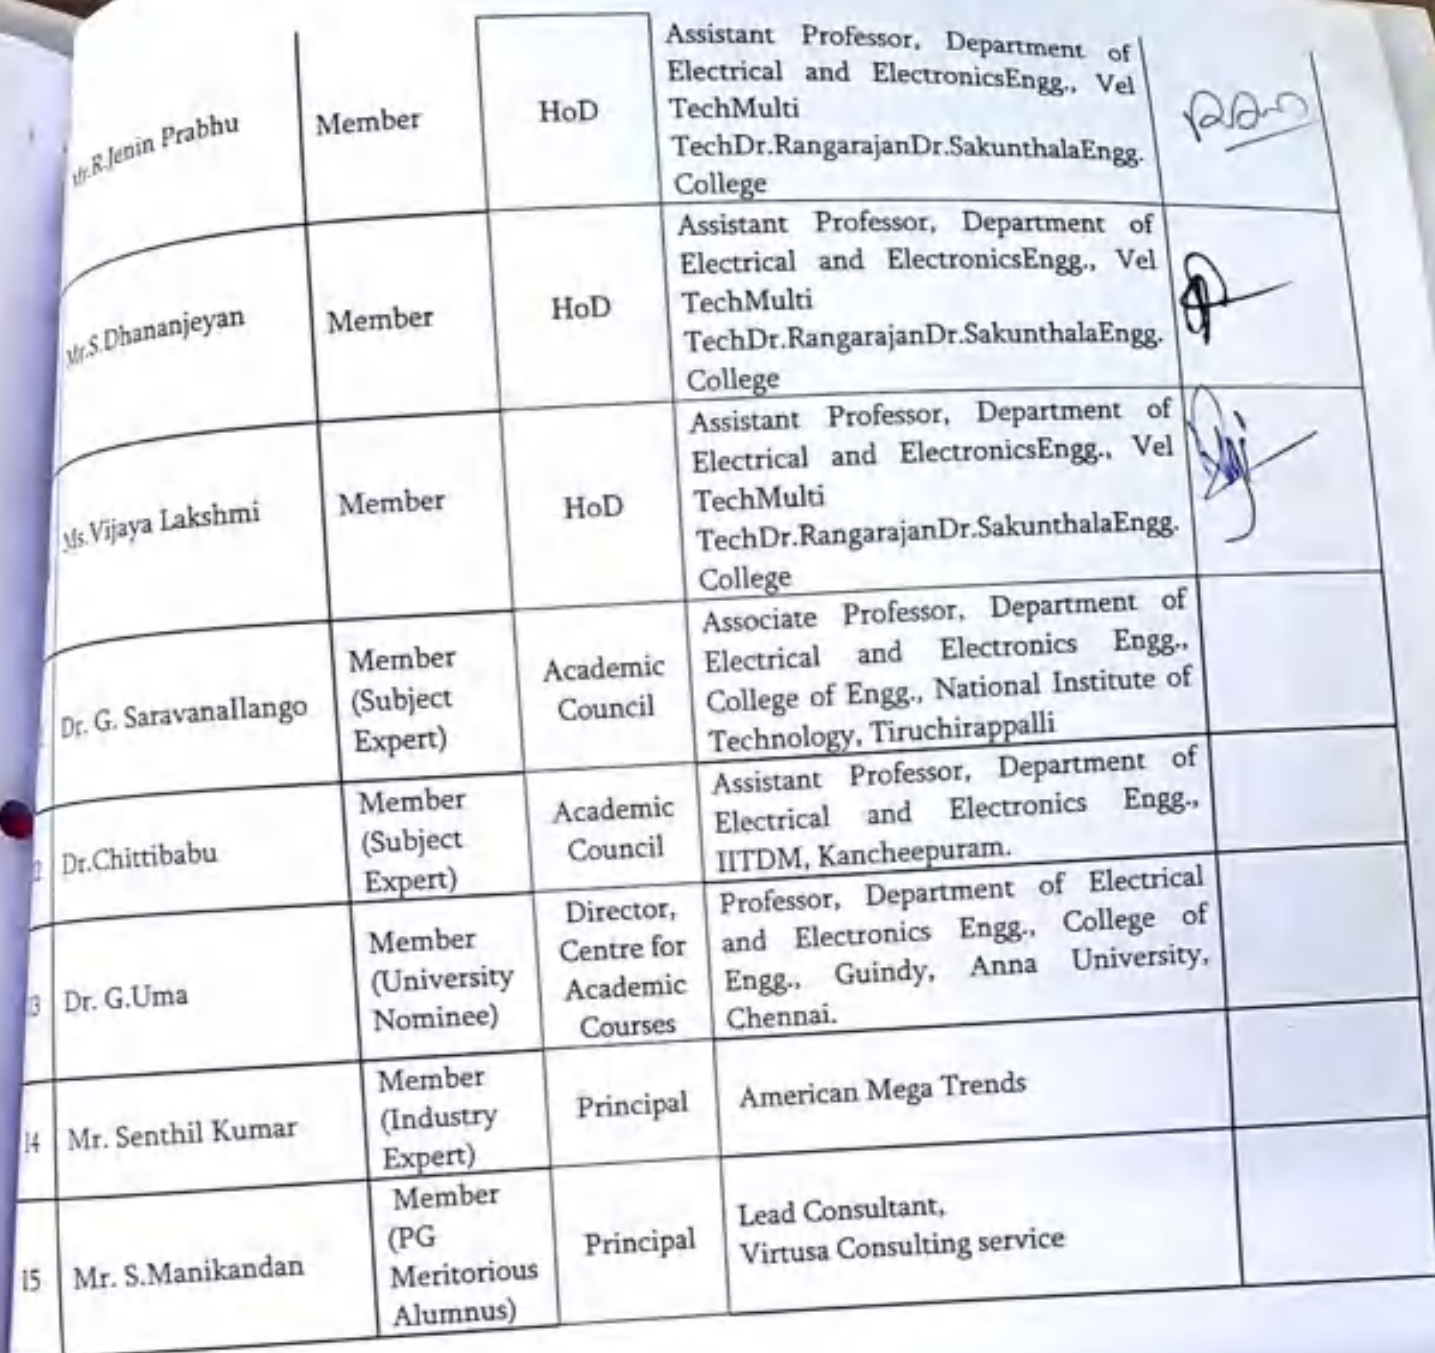 Mr.R.Jenin Prabhu
Member
HoD
Assistant Professor, Department of
Electrical and ElectronicsEngg., Vel
TechMulti
TechDr.RangarajanDr.SakunthalaEngg.
College
Mr.S.Dhananjeyan
Member
HoD
Assistant Professor, Department of
Electrical and ElectronicsEngg., Vel
TechMulti
TechDr.RangarajanDr.SakunthalaEngg.
College
Ms.Vijaya Lakshmi
Member
HoD
Assistant Professor, Department of
Electrical and ElectronicsEngg., Vel
TechMulti
TechDr.RangarajanDr.SakunthalaEngg.
College
Dr. G. Saravanallango
Member
(Subject
Expert)
Academic
Council
Associate Professor, Department of
Electrical and Electronics Engg.,
College of Engg., National Institute of
Technology, Tiruchirappalli
2
Dr.Chittibabu
Member
(Subject
Expert)
Academic
Council
Assistant Professor, Department of
Electrical and Electronics Engg.,
IITDM, Kancheepuram.
3
Dr. G.Uma
Member
(University
Nominee)
Director,
Centre for
Academic
Courses
Professor, Department of Electrical
and Electronics Engg., College of
Engg., Guindy, Anna University,
Chennai.
14
Mr. Senthil Kumar
Member
(Industry
Expert)
Principal
American Mega Trends
15
Mr. S.Manikandan
Member
(PG
Meritorious
Alumnus)
Principal
Lead Consultant,
Virtusa Consulting service